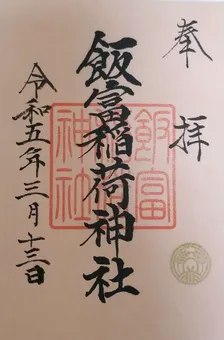 奉拝
飯富稲荷神社
飯富
神社
令和五年三月十三日